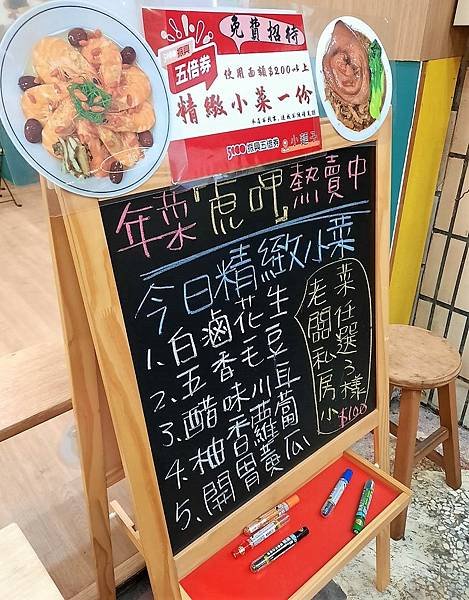 免費招待
振興
五倍券
使用面額$200以上
精緻小菜一份
5000振興五倍券
小麵子
年菜「虎呷」熱賣中
今日精緻小菜
1.白滷花生
2.五香毛豆
3.醋味川耳
4.柚香蘿蔔
5.開胃黃瓜
老闆私房小
菜任選3樣
$100